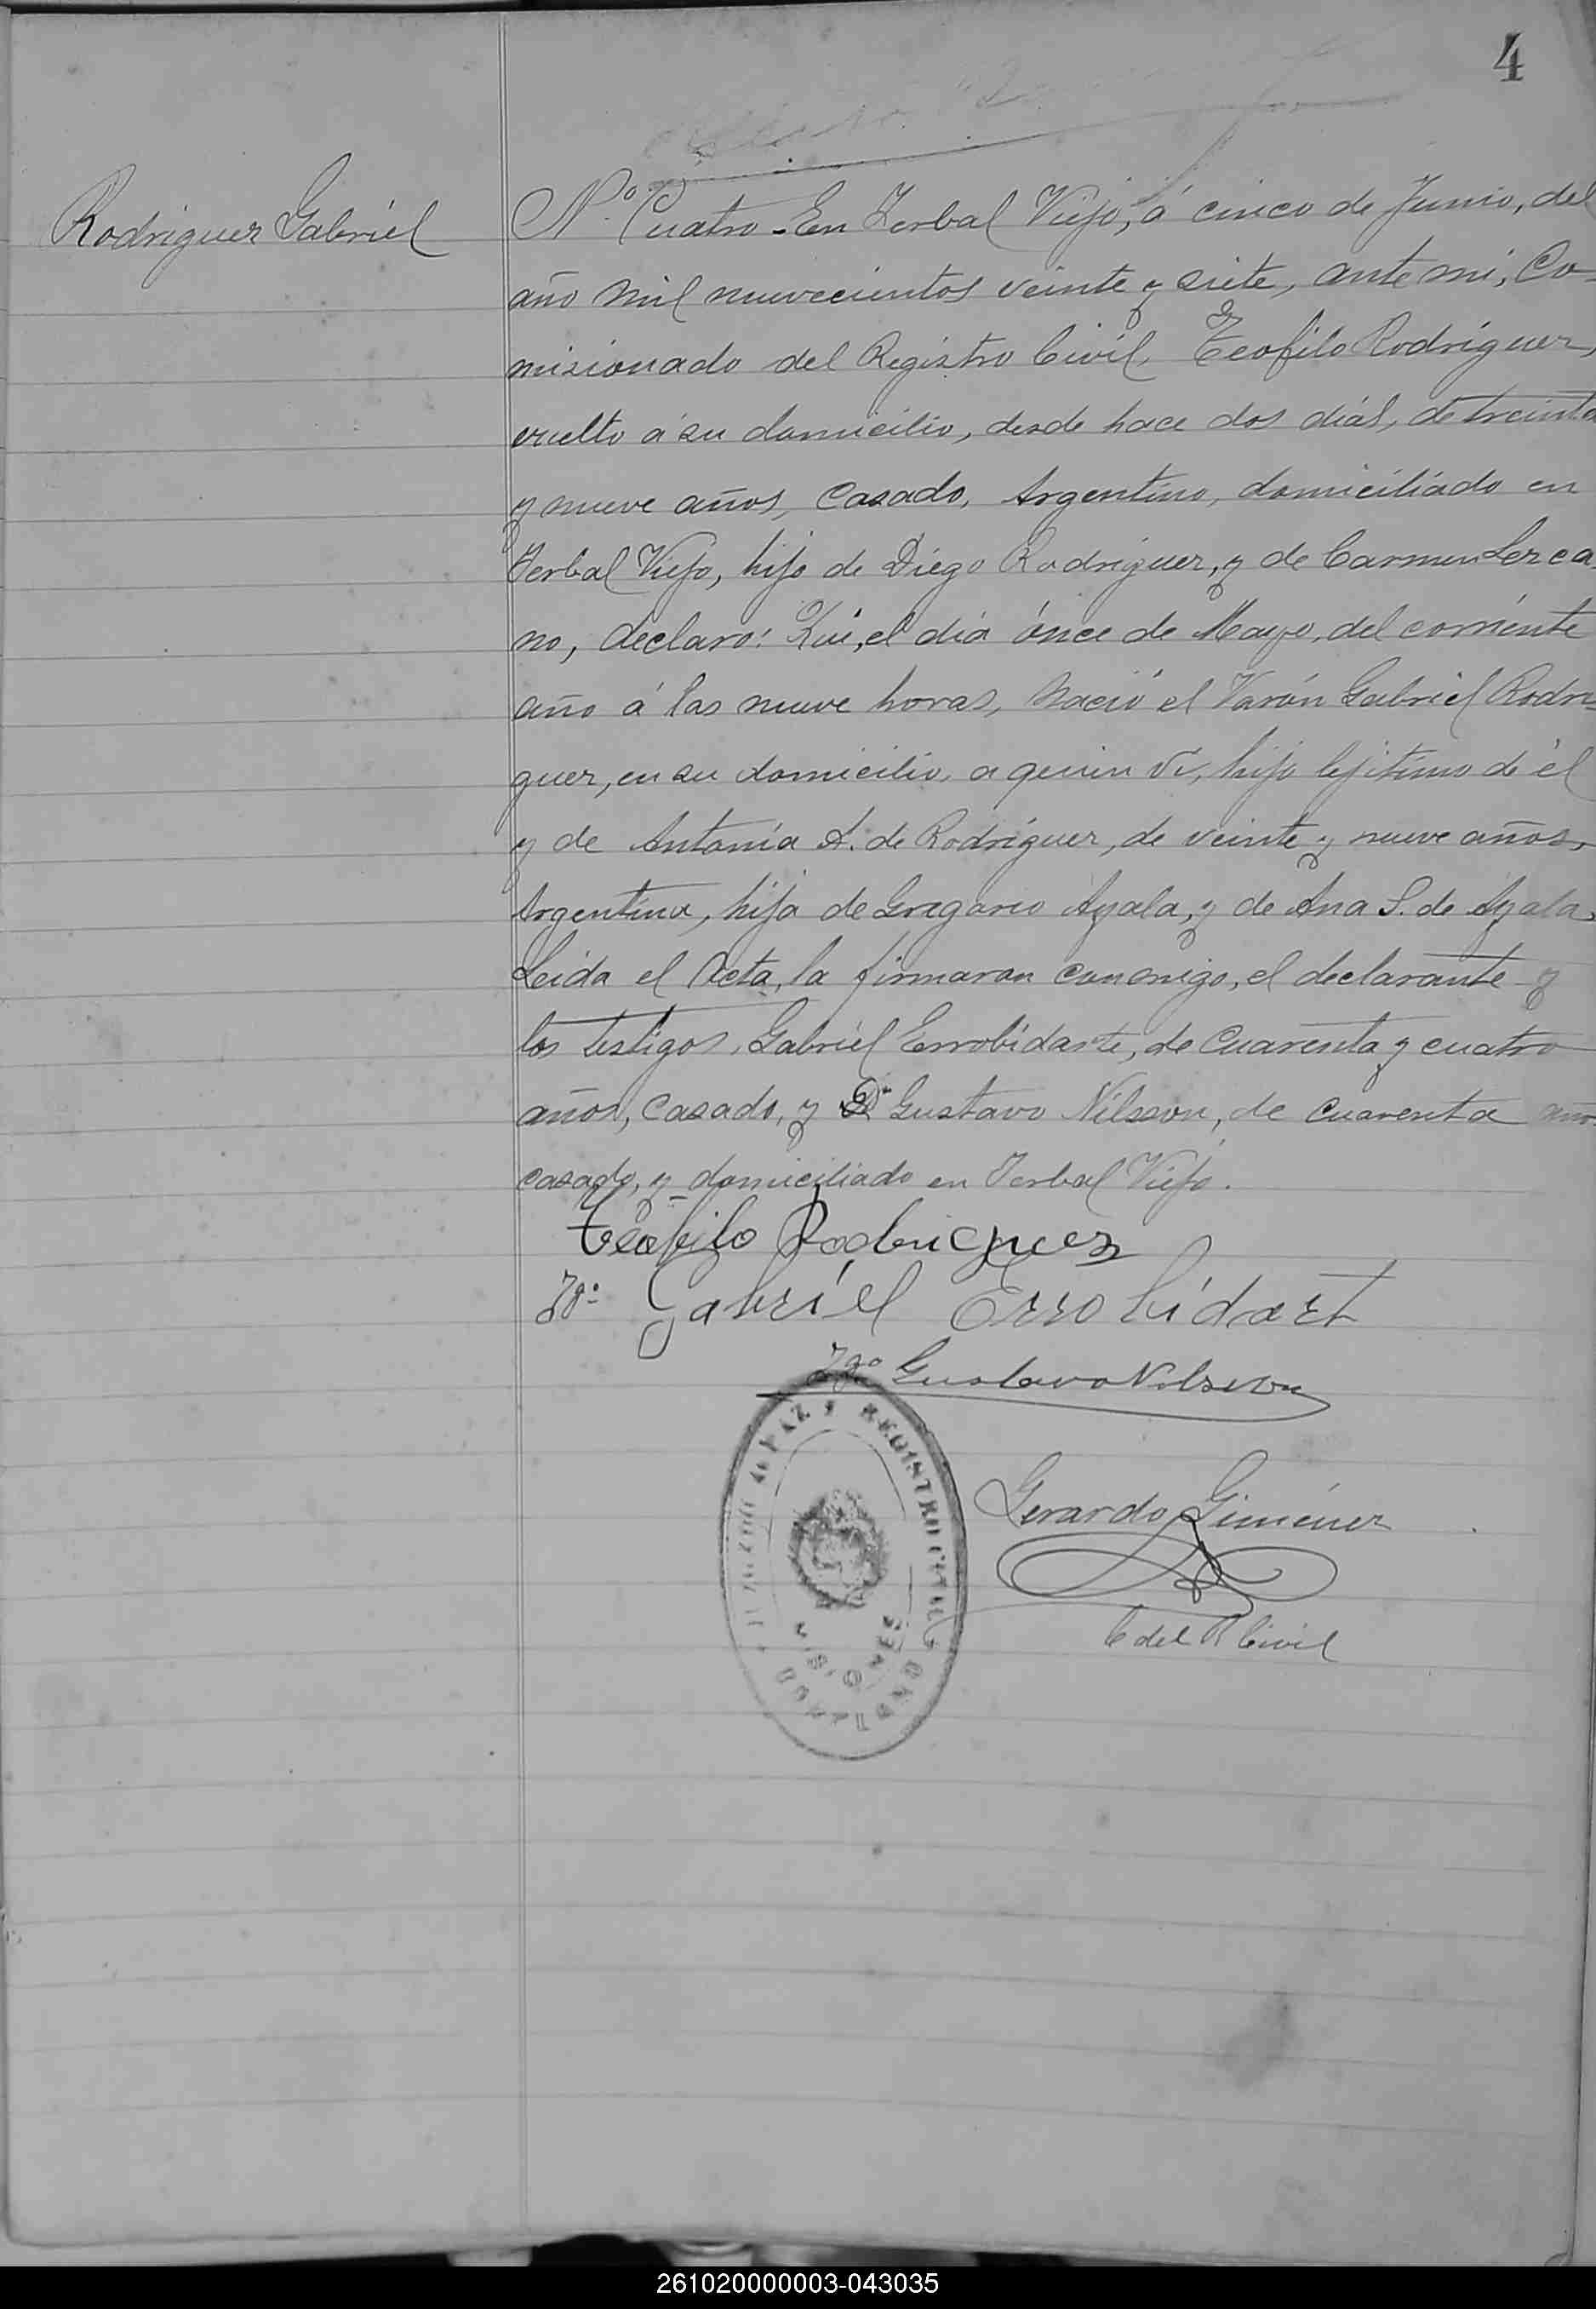 4
Rodriguez Gabriel
Nº Cuatro - En Yerbal Viejo, á cinco de Junio, del
año mil nuevecientos veinte y siete, ante mi, Co-
misionado del Registro Civil, Teofilo Rodriguez,
vuelto á su domicilio, desde hace dos dias, de treinta
y nueve años, Casado, Argentino, domiciliado en
Yerbal Viejo, hijo de Diego Rodriguez, y de Carmen Lezca
no, declaró: Que, el dia ónce de Mayo, del corriente
año á las nueve horas, Nació el Varón Gabriel Rodri-
guez, en su domicilio, a quien vi, hijo lejitimo de él
y de Antonia A. de Rodriguez, de veinte y nueve años,
Argentina, hija de Gregorio Ayala, y de Ana S. de Ayala,
Leida el Acta, la firmaron conmigo, el declarante y
los testigos, Gabriel Errobidarte, de Cuarenta y cuatro
años, Casado, y Dn Gustavo Nilsson, de cuarenta año
casado, y domiciliado en Yerbal Viejo.
Teofilo Rodriguez
Tgo Gabriel Errobidart
Tgo Gustavo Nilsson
JUZGADO DE PAZ Y REGISTRO CIVIL
MISIONES
Gerardo Giménez
C del R Civil
261020000003-043035